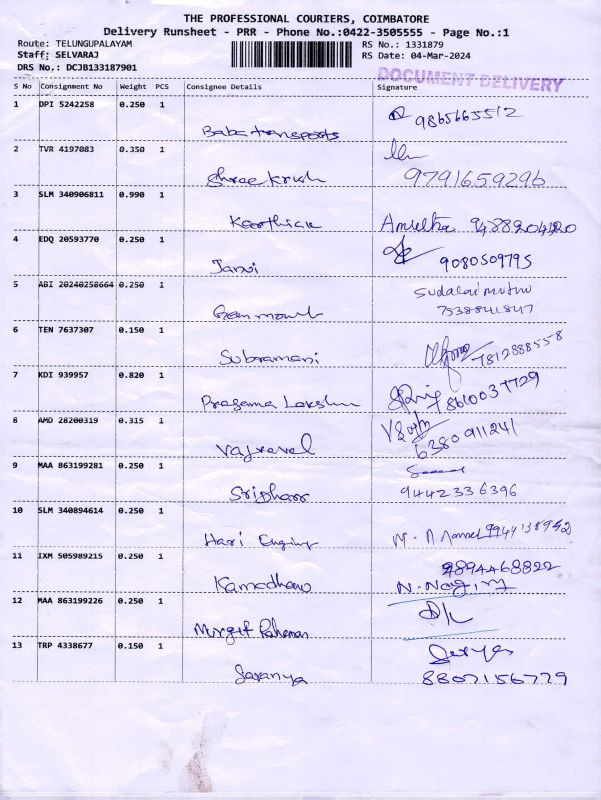 THE PROFESSIONAL COURIERS, COIMBATORE
Delivery Runsheet - PRR - Phone No.:0422-3505555 - Page No.:1
Route: TELUNGUPALAYAM RS No.: 1331879
Staff: SELVARAJ RS Date: 04-Mar-2024
DRS No.: DCJB133187901
DOCUMENT DELIVERY
S No Consignment No Weight PCS Consignee Details Signature
1 DPI 5242258 0.250 1
Baba transports 9865665512
2 TVR 4197083 0.350 1
Shree Krish 9791659296
3 SLM 340906811 0.990 1
Karthick
4 EDQ 20593770 0.250 1
9080509795
5 ABI 20240258664 0.250 1
Sudalaimuthu
7538841847
6 TEN 7637307 0.150 1
Subramani 7812888558
7 KDI 939957 0.820 1
8610037729
8 AMD 28200319 0.315 1
Vajravel 6380911241
9 MAA 863199281 0.250 1
Sridharr 9442336396
10 SLM 340894614 0.250 1
Hari
11 IXM 505989215 0.250 1
9894468822
12 MAA 863199226 0.250 1
Rahaman
13 TRP 4338677 0.150 1
Saranya 8807156779